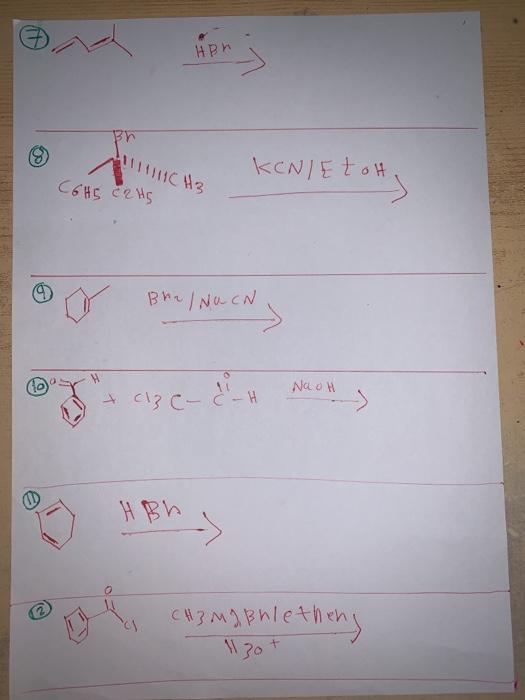 7
HBr
8
Br
CH3
C6H5 C2H5
KCN/EtOH
9
Br2/NaCN
10
O H
+ Cl3C-C-H
O
NaOH
11
HBr
12
O
Cl
CH3MgBr/ether
H3O+